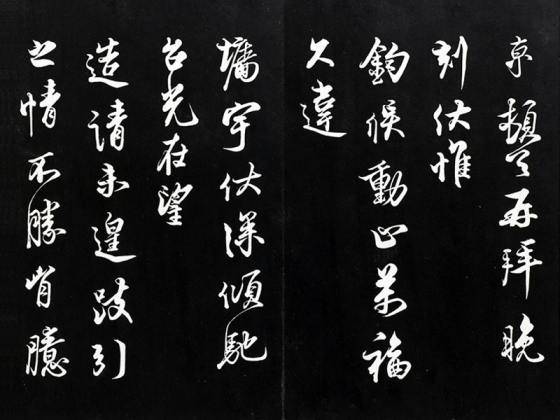 京頓首再拜晚
刻伏惟
鈞候動止萬福
久違
墻宇伏深傾馳
台光在望
造請未遑跂引
之情不勝胷臆